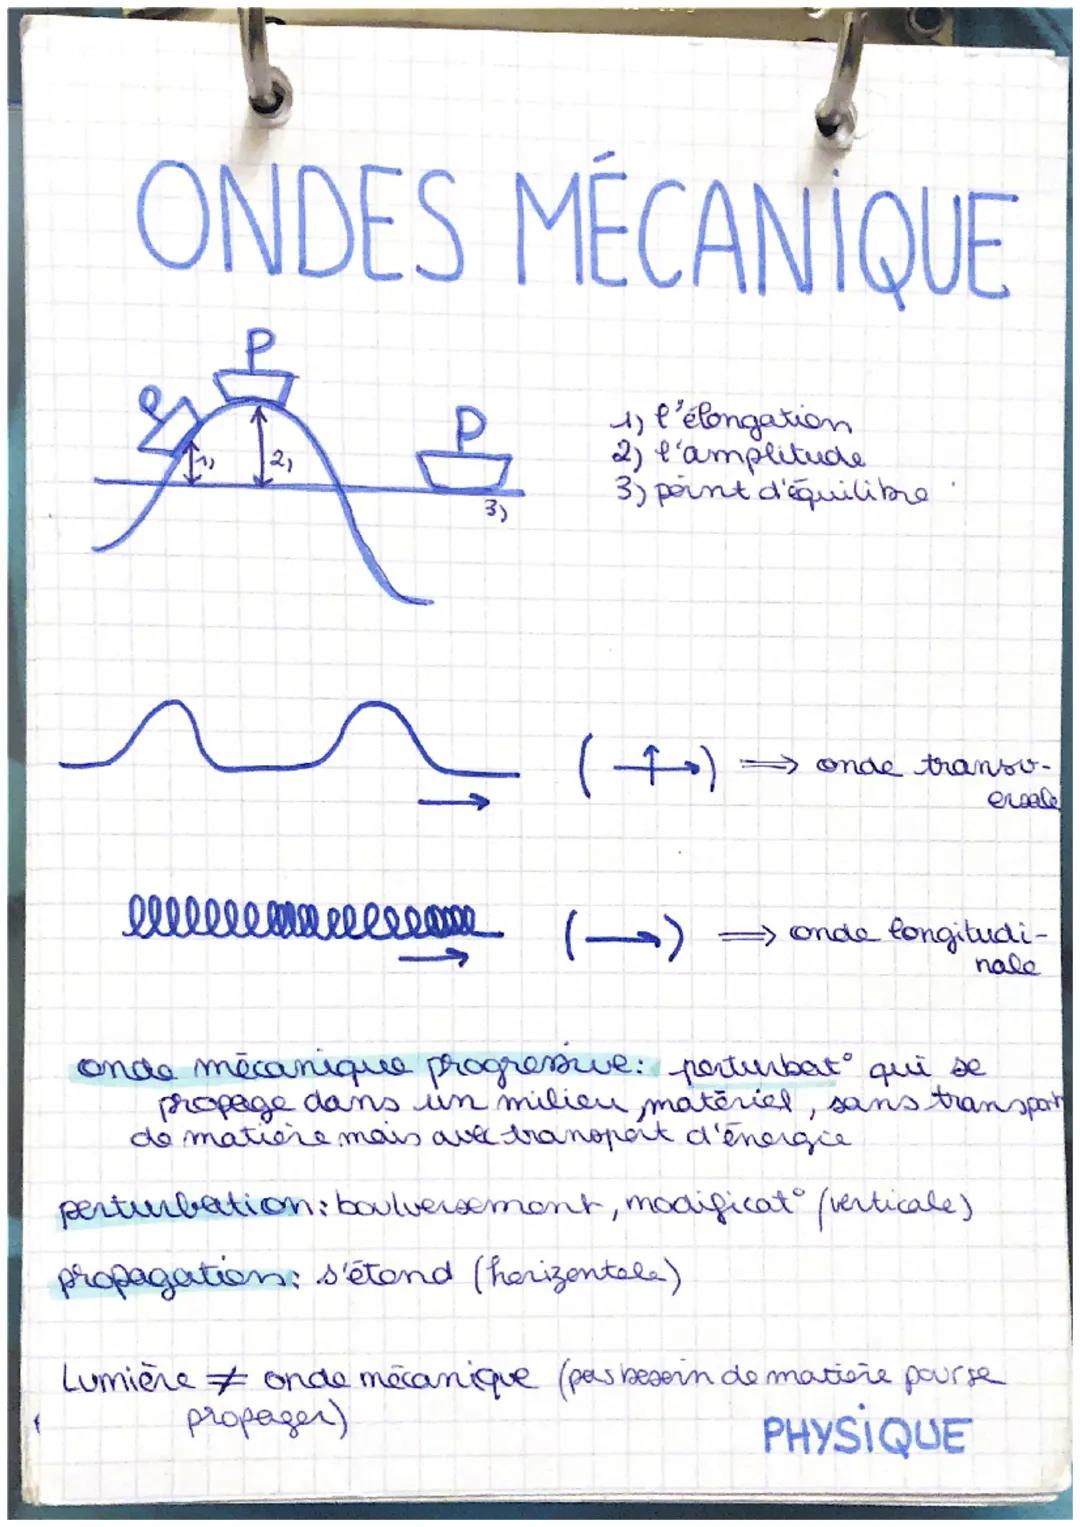 ONDES MÉCANIQUE
P
P
P
1)
2)
3)
1) l'élongation
2) l'amplitude
3) point d'équilibre
( ) ⟹ onde transv-
ersale
( → ) ⟹ onde longitudi-
nale
onde mécanique progressive: perturbat° qui se
propage dans un milieu matériel, sans transport
de matière mais avec transport d'énergie
perturbation: boulversement, modificat° (verticale)
propagation: s'étend (horizontale)
Lumière ≠ onde mécanique (pas besoin de matière pour se
propager)
PHYSIQUE